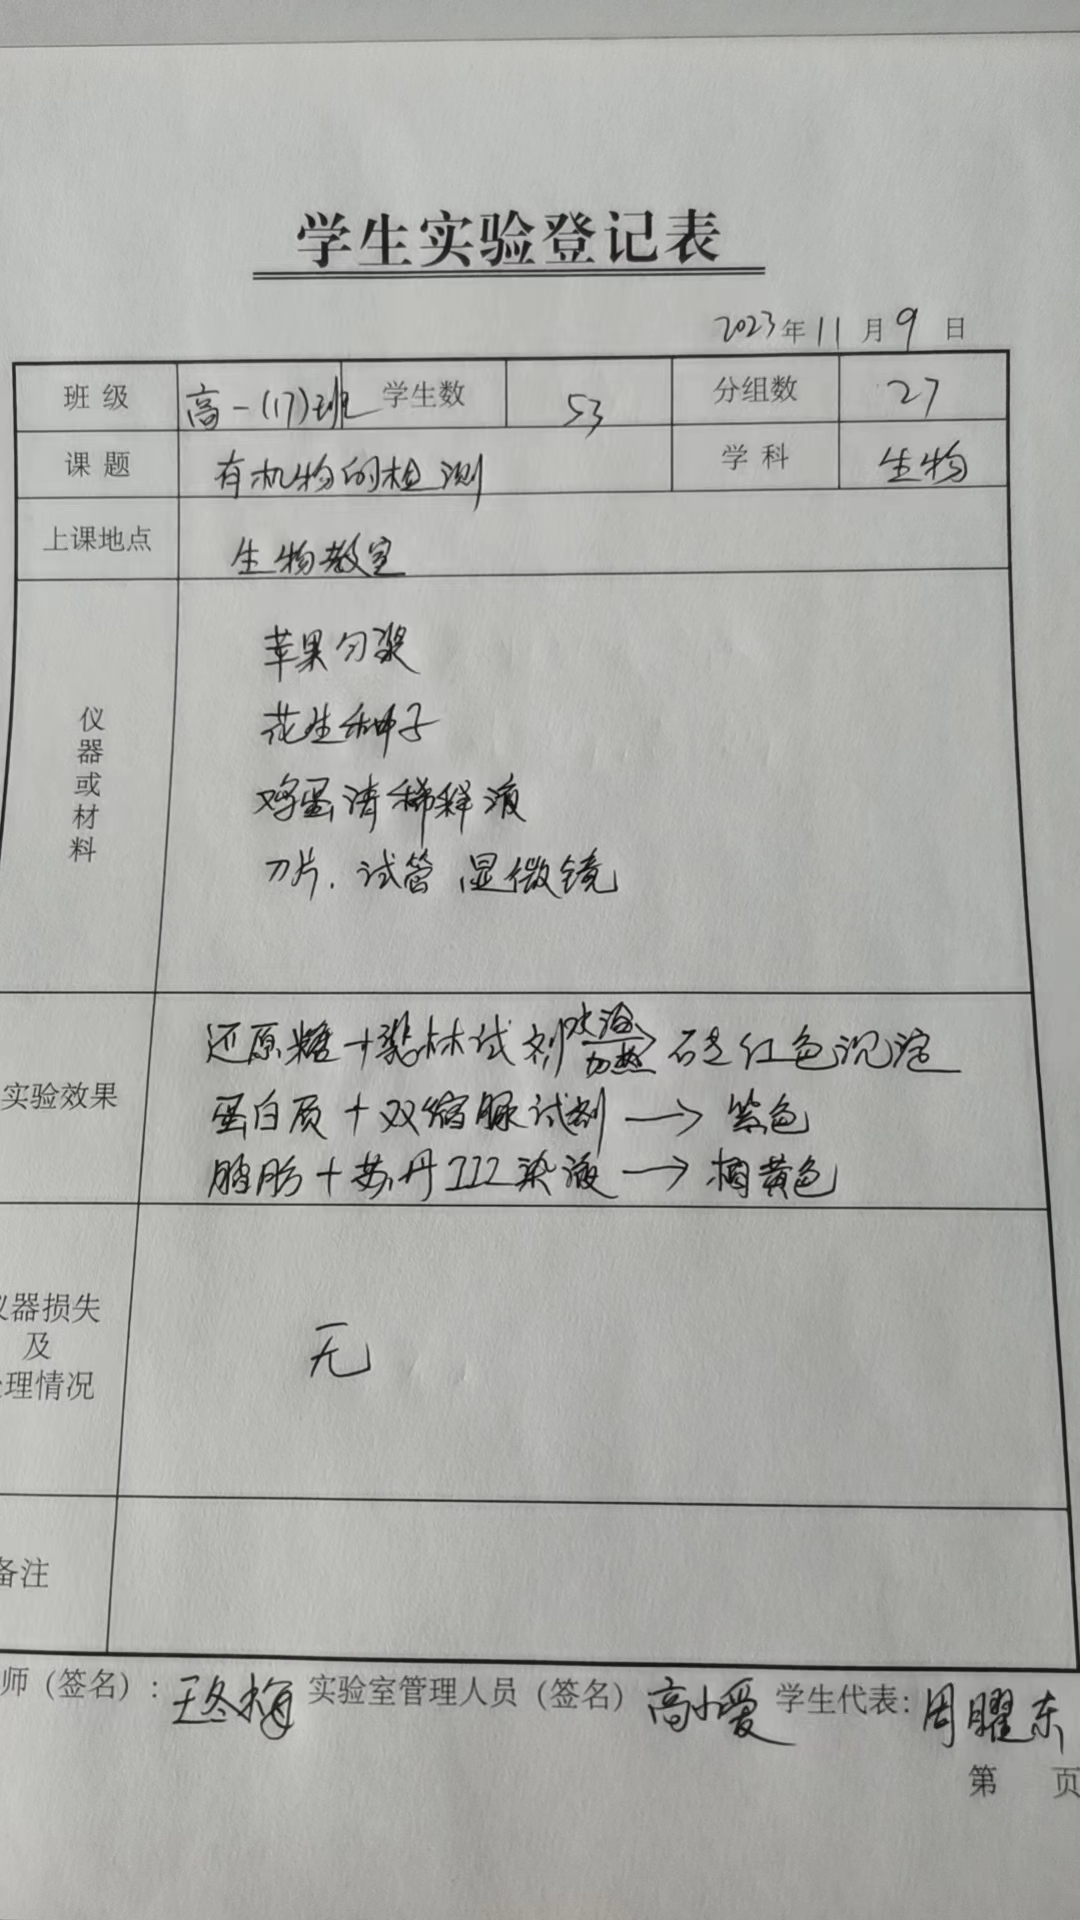 学生实验登记表
2023年11月9日
班级 高一(17)班 学生数 53 分组数 27
课题 有机物的检测 学科 生物
上课地点 生物教室
仪器或材料
苹果匀浆
花生种子
鸡蛋清稀释液
刀片.试管 显微镜
实验效果
水浴
还原糖+斐林试剂→砖红色沉淀
加热
蛋白质+双缩脲试剂→紫色
脂肪+苏丹III染液→橘黄色
仪器损失
及
处理情况
无
备注
师(签名): 王冬梅 实验室管理人员(签名) 高小爱 学生代表: 周曜东
第 页